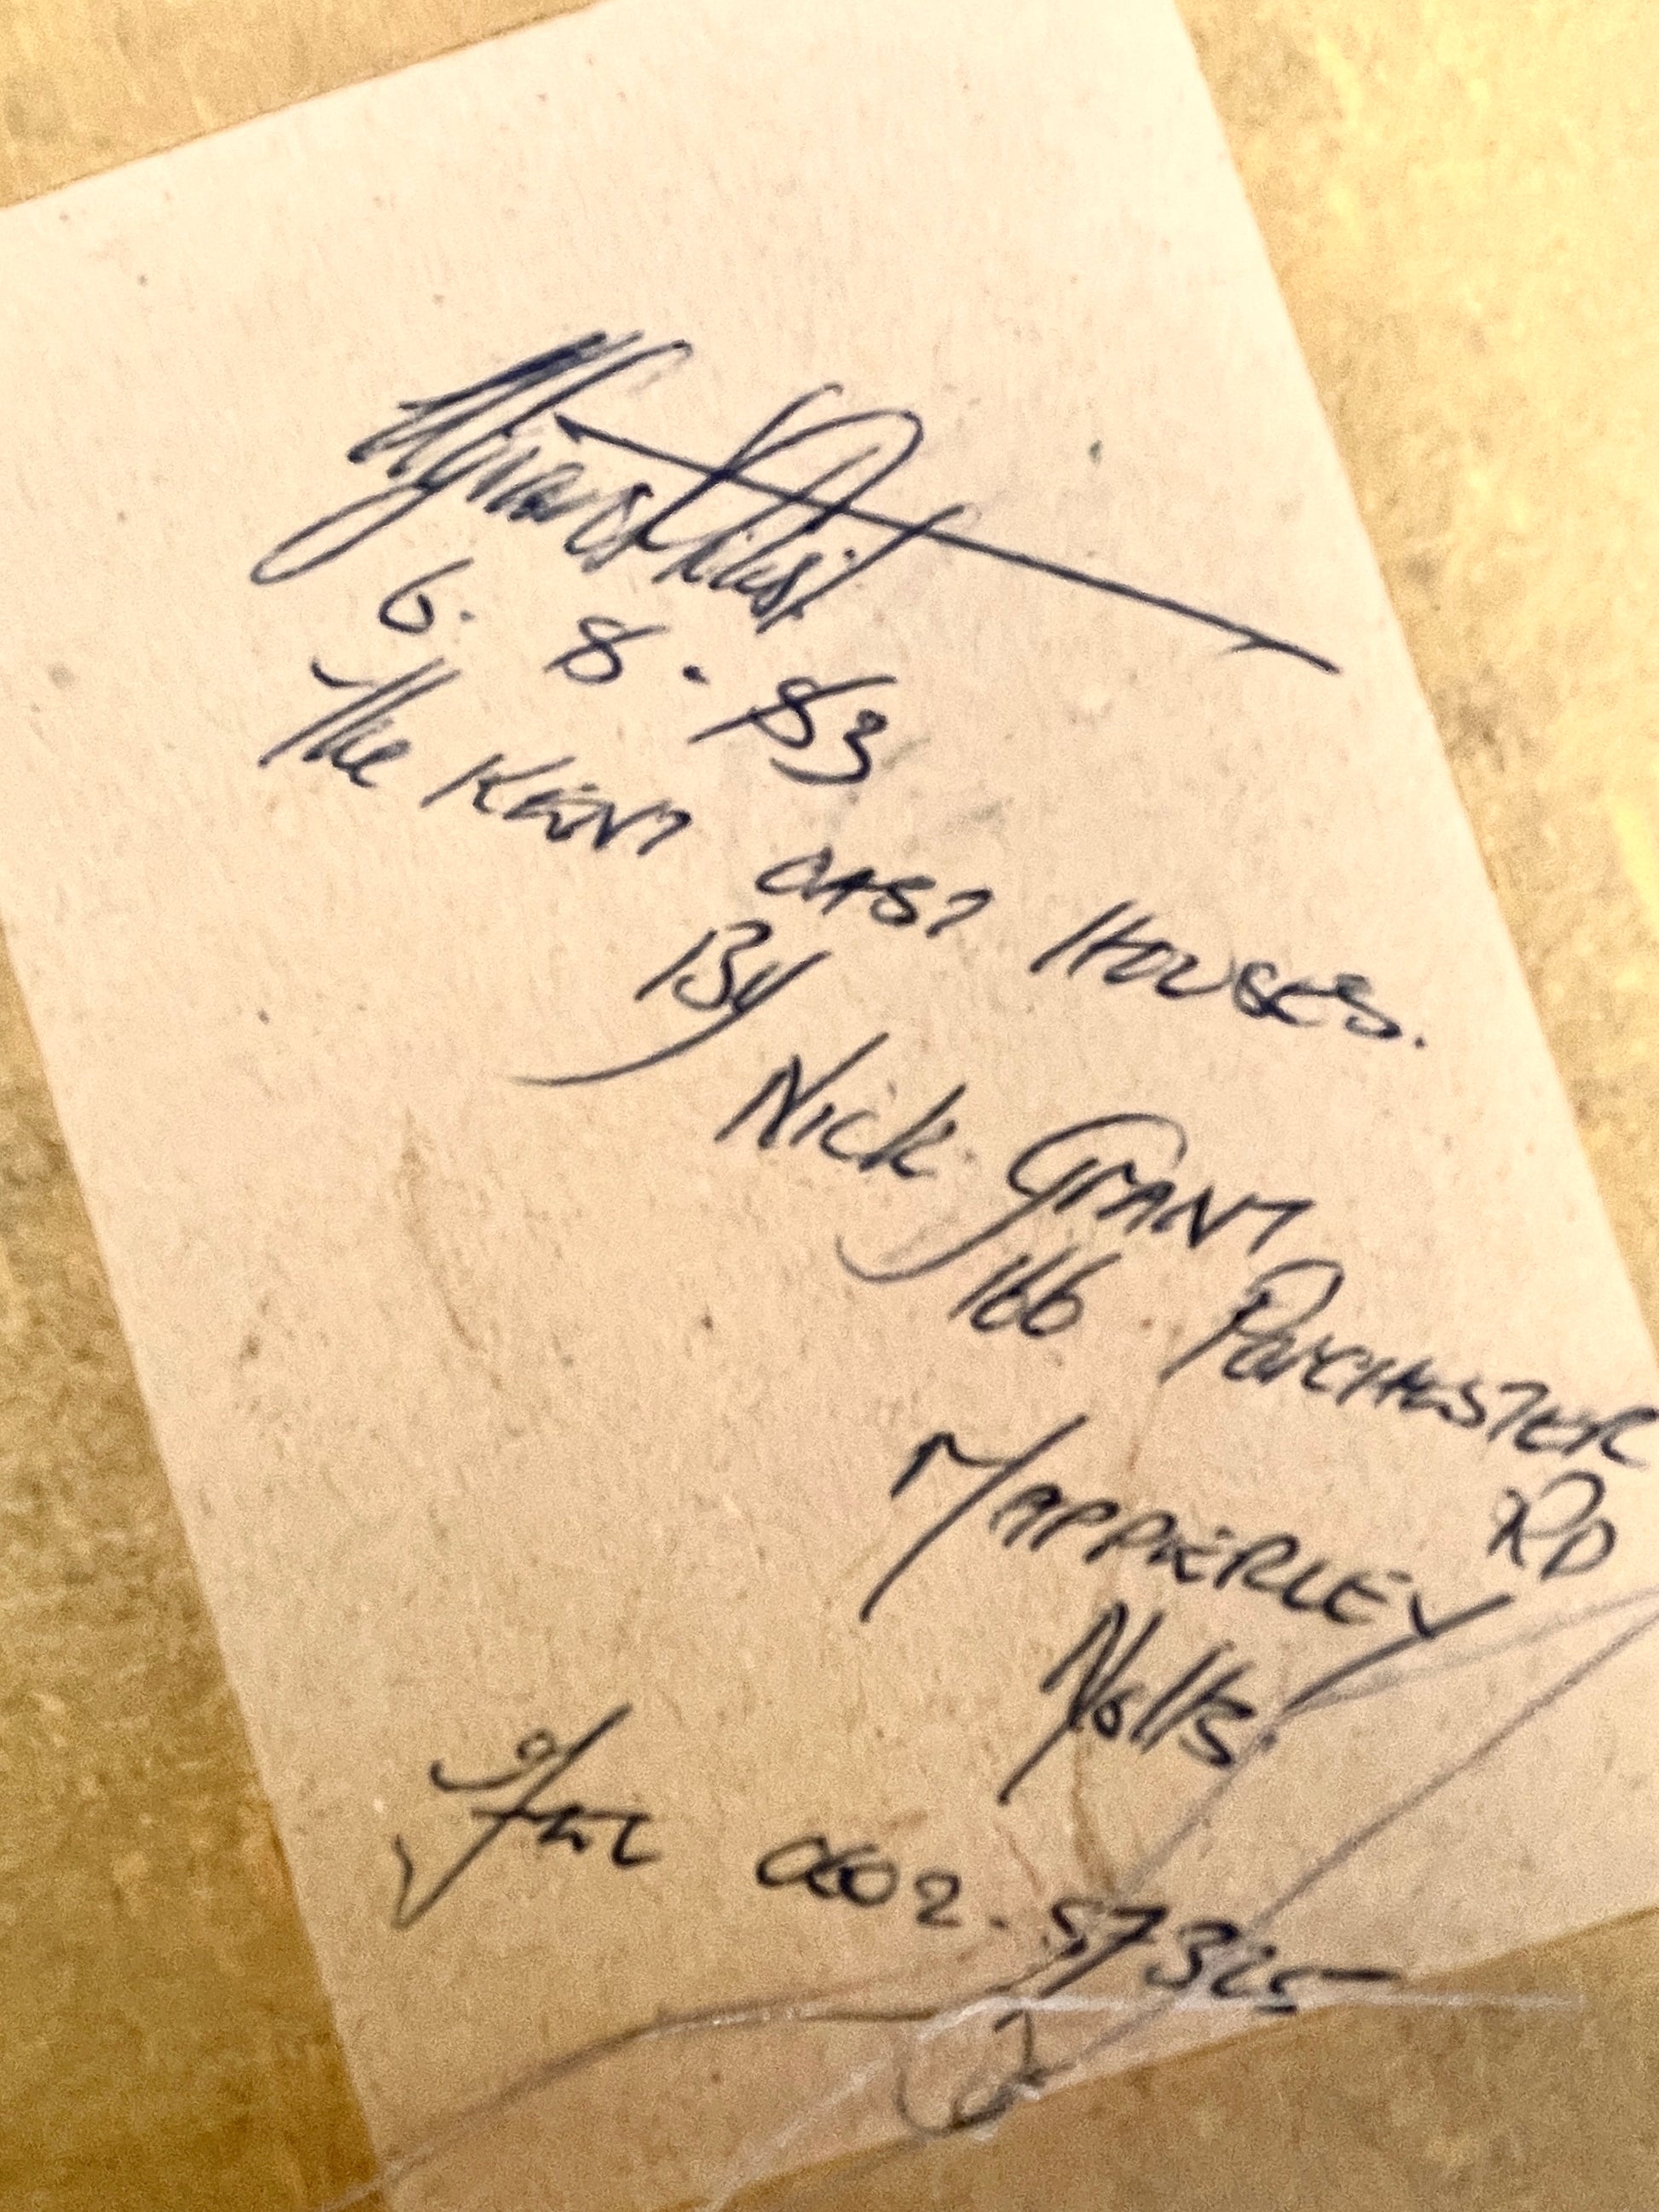 6. 8. 83
The KENT OAST HOUSES.
By
Nick GRANT
166 PORCHESTER
RD
MAPPERLEY
Notts.
TEL 0602. 57325